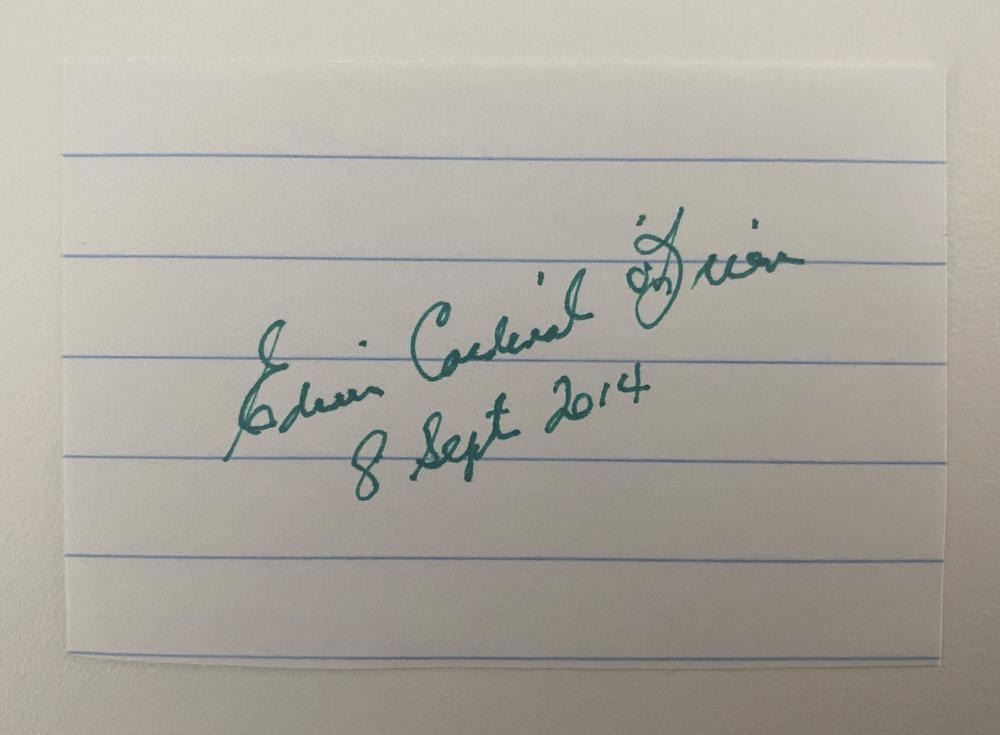 Edwin Cardinal O'Brien
8 Sept 2014